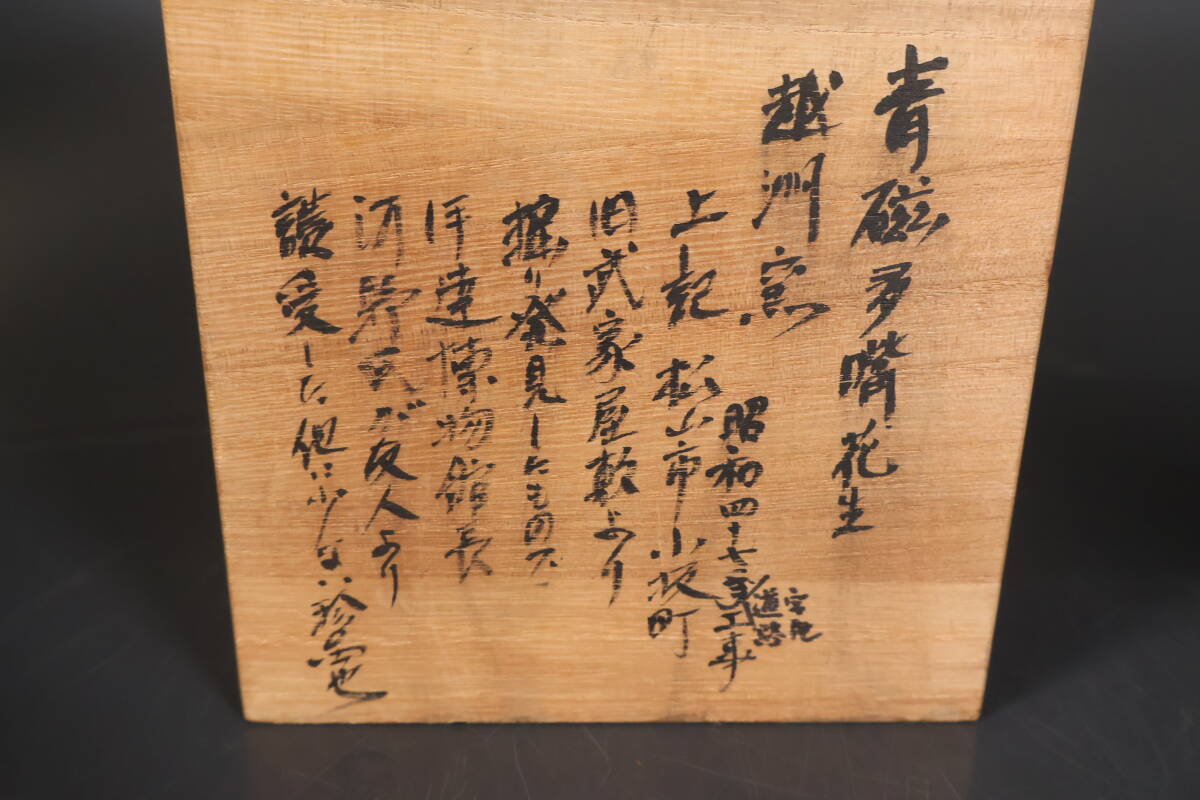 青磁多嘴花生
越州窯
昭和四十七年
道路工事
上記 松山市小坂町
旧武家屋敷より
掘り発見したもので
伊達博物館長
河野氏が友人より
譲受した他に少ない珍品也